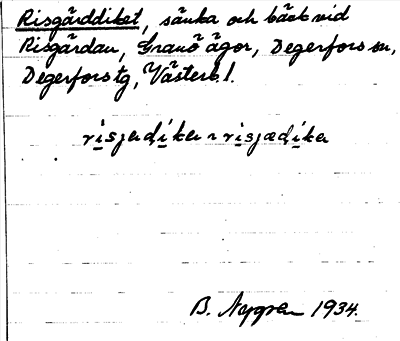 Risgärddiket, sänka och bäck vid
Risgärdan, Granö ägor, Degerfors sn,
Degerfors tg, Västerb. l.
risjedika ~ risjædika
B. Nygren 1934.